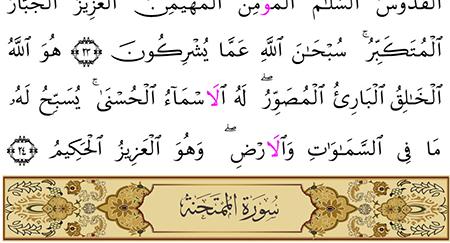 الْقُدُّوسُ السَّلَٰمُ الْمُومِنُ الْمُهَيْمِنُ الْعَزِيزُ الْجَبَّارُ
الْمُتَكَبِّرُ ۚ سُبْحَٰنَ اللَّهِ عَمَّا يُشْرِكُونَ ٢٣ هُوَ اللَّهُ
الْخَٰلِقُ الْبَارِئُ الْمُصَوِّرُ ۖ لَهُ الَاسْمَآءُ الْحُسْنَىٰ ۚ يُسَبِّحُ لَهُۥ
مَا فِى السَّمَٰوَٰتِ وَالَارْضِ ۖ وَهُوَ الْعَزِيزُ الْحَكِيمُ ٢٤
سُورَةُ الْمُمْتَحَنَةِ